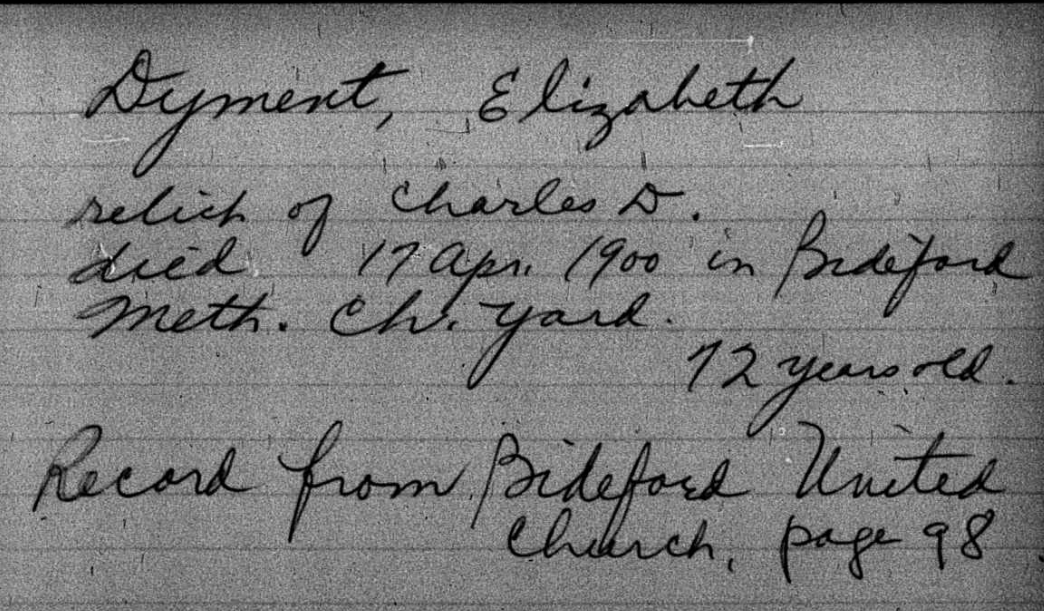 Dyment, Elizabeth
relict of Charles D.
died 17 Apr. 1900 in Bideford
Meth. Ch. Yard.
72 years old.
Record from Bideford United
Church, page 98